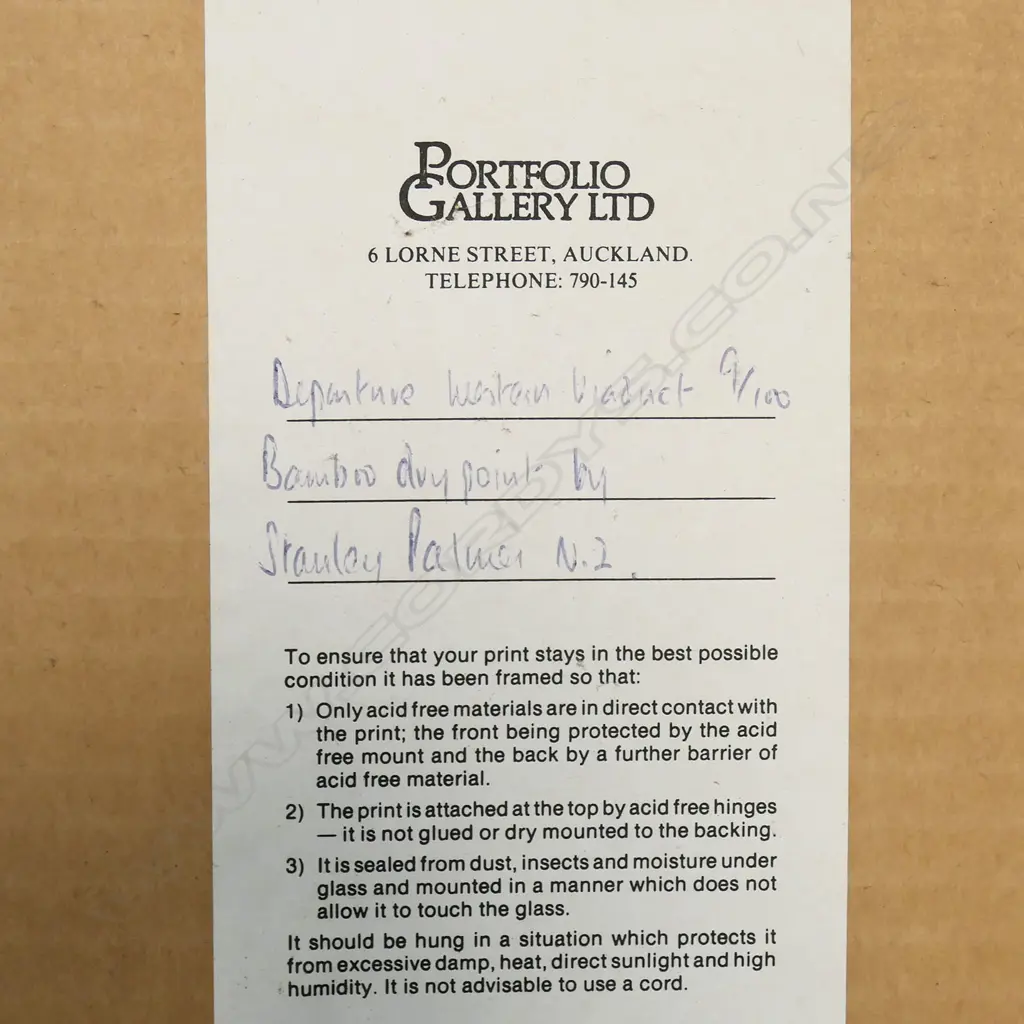 PORTFOLIO
GALLERY LTD
6 LORNE STREET, AUCKLAND.
TELEPHONE: 790-145
Departure Western Viaduct 9/100
Bamboo dry point by
Stanley Palmer N.Z.
To ensure that your print stays in the best possible
condition it has been framed so that:
1) Only acid free materials are in direct contact with
the print; the front being protected by the acid
free mount and the back by a further barrier of
acid free material.
2) The print is attached at the top by acid free hinges
— it is not glued or dry mounted to the backing.
3) It is sealed from dust, insects and moisture under
glass and mounted in a manner which does not
allow it to touch the glass.
It should be hung in a situation which protects it
from excessive damp, heat, direct sunlight and high
humidity. It is not advisable to use a cord.
WWW.CORDYS.CO.NZ